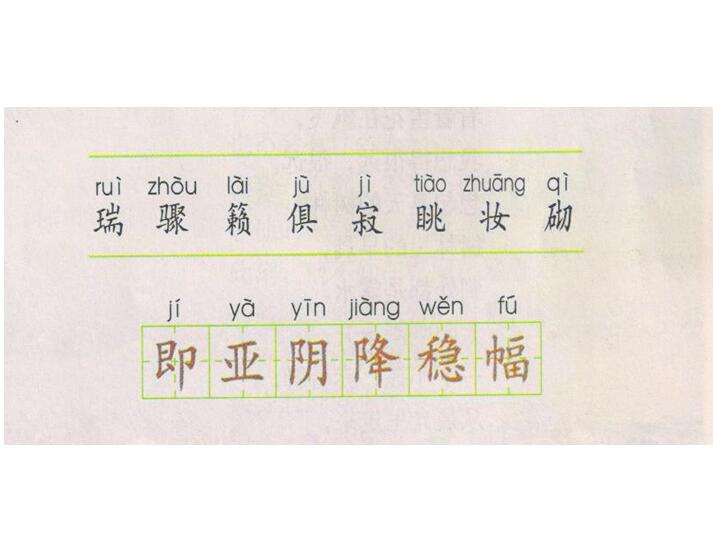 ruì zhòu lài jù jì tiào zhuāng qì
瑞 骤 籁 俱 寂 眺 妆 砌
jí yà yīn jiàng wěn fú
即 亚 阴 降 稳 幅